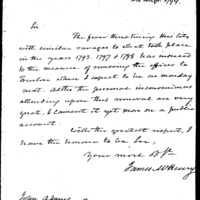 Augt. 1799.
Sir
The fever threatening this city
with similar ravages to that took place
in the years 1793. 1797 & 1798 has induced
to the measure of removing the offices to
Trenton where I expect to be on monday
next. Altho the personal inconveniences
attending upon this removal are very
great, I lament it yet more on a public
account.
With the greatest respect, I
have the honour to be Sir,
Your most Obt
James McHenry
John Adams